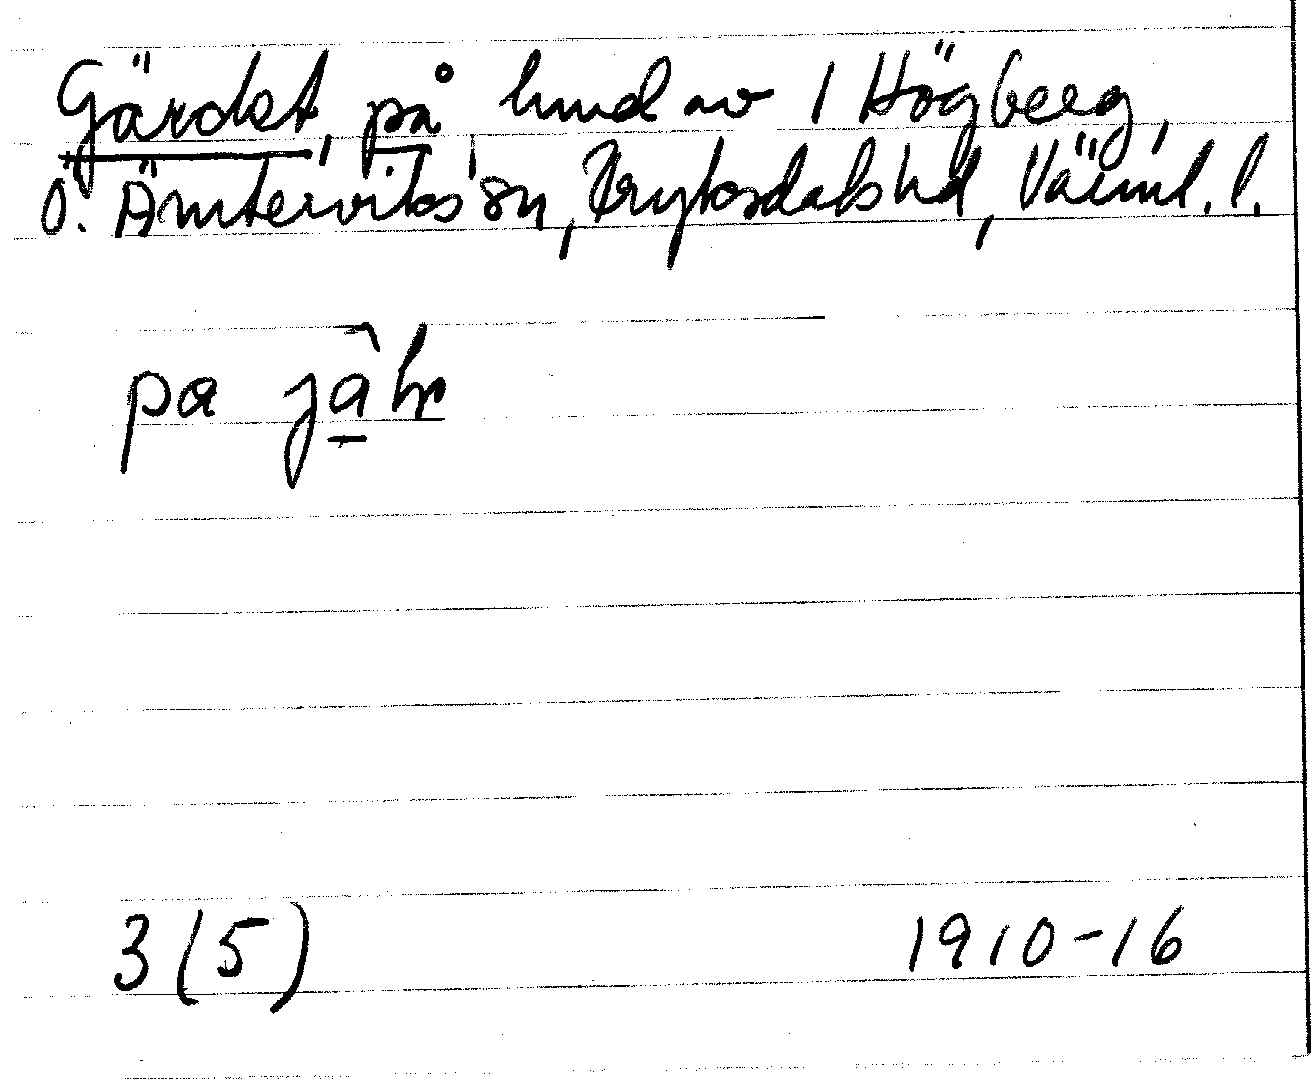 Gärdet, på, hmd av 1 Högberg,
Ö. Ämterviks sn, Fryksdals hd, Värml. l.
pa
3(5) 1910-16